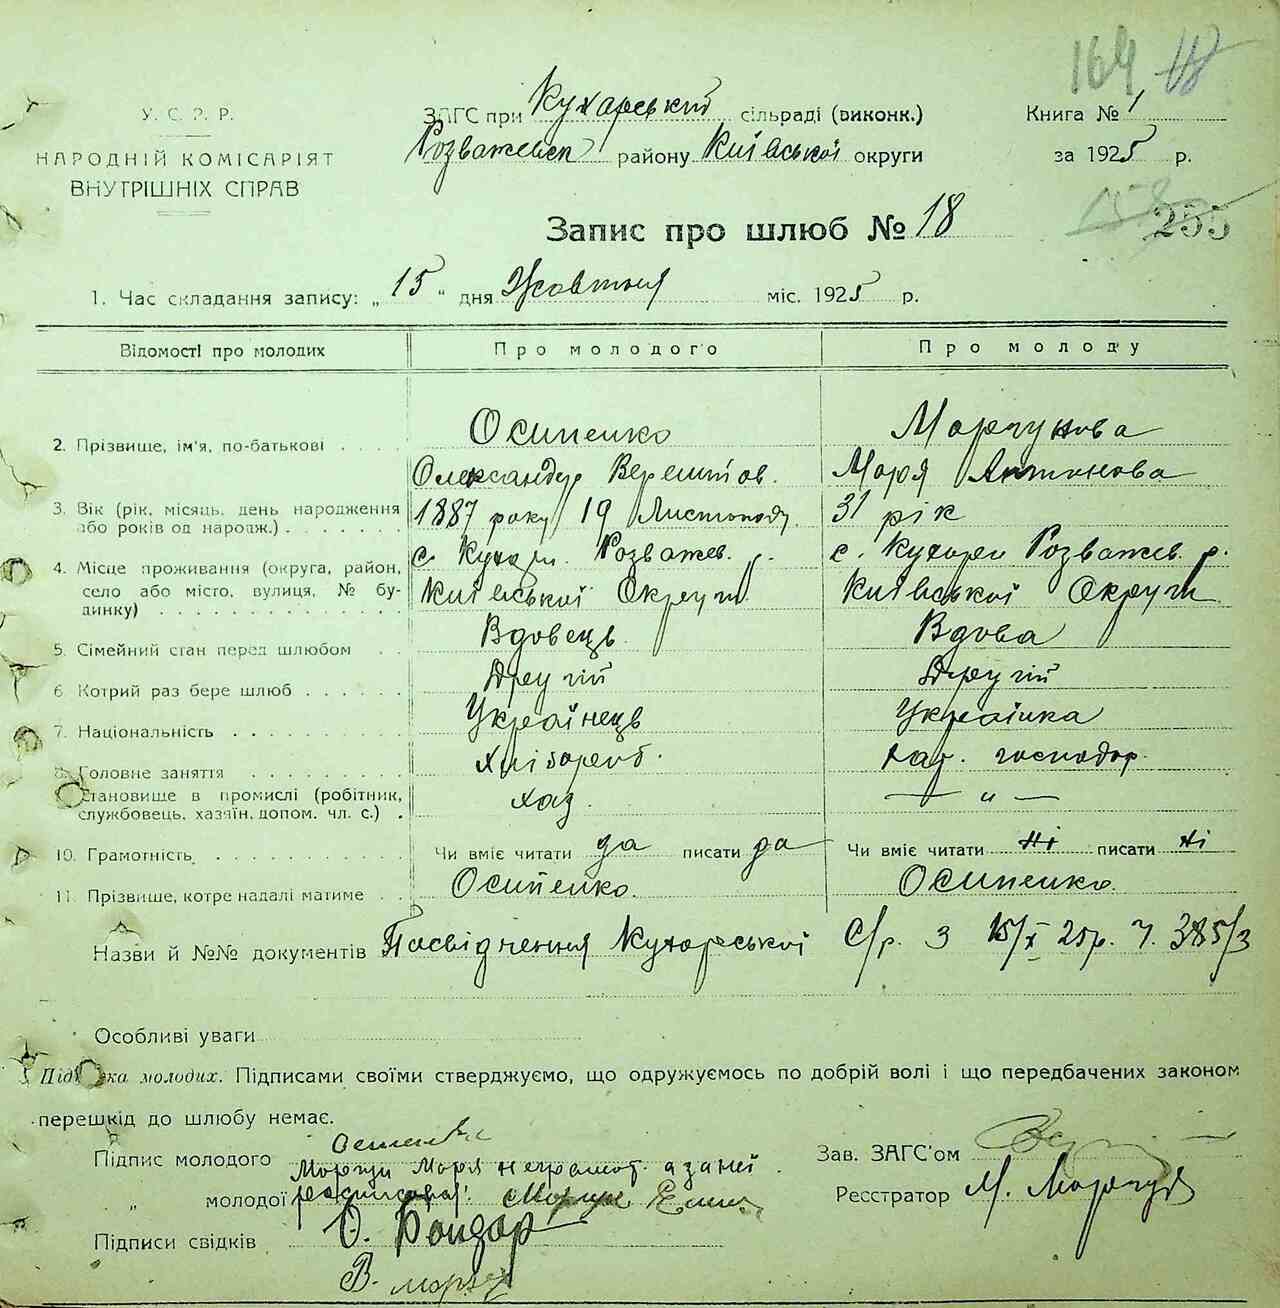 164 18
У. С. Р. Р.
НАРОДНІЙ КОМІСАРІЯТ
ВНУТРІШНІХ СПРАВ
ЗАГС при Кухарський сільраді (виконк.)
Розважевськ району Київської округи
Книга № 1
за 1925 р.
Запис про шлюб № 18
158 255
1. Час складання запису: „ 15 “ дня Жовтня міс. 1925 р.
Відомості про молодих Про молодого Про молоду
2. Прізвище, ім'я, по-батькові . . . . Осипенко Марчукова
Олександр Марія Антонова
3. Вік (рік, місяць, день народження або років од народж.) . . . . . . 1887 року 19 Листопаду 31 рік
4. Місце проживання (округа, район, село або місто, вулиця, № будинку) . . . . . . с. Кухари Розважев. р. Київської Округи с. Кухари Розважев. р. Київської Округи
5. Сімейний стан перед шлюбом . . Вдовець Вдова
6. Котрий раз бере шлюб . . . . . . Другий Другий
7. Національність . . . . . . . . . . Українець Українка
8. Головне заняття . . . . . . . . . хлібороб. господар.
Становище в промислі (робітник, службовець, хазяїн, допом. чл. с.) . хаз. — „ —
10. Грамотність . . . . . . . . . . Чи вміє читати да писати да Чи вміє читати ні писати ні
11. Прізвище, котре надалі матиме . . Осипенко. Осипенко.
Назви й №№ документів Посвідчення Кухарської С/р. з 15/X 25р. Ч. 385/3
Особливі уваги
Підписка молодих. Підписами своїми стверджуємо, що одружуємось по добрій волі і що передбачених законом
перешкід до шлюбу немає.
Підпис молодого Осипенко
Марчук Марія неграмот. а за неї
„ молодої расписався:
Зав. ЗАГС'ом
Реєстратор М. Марчук
Підписи свідків О. Бондар
В. Марчук